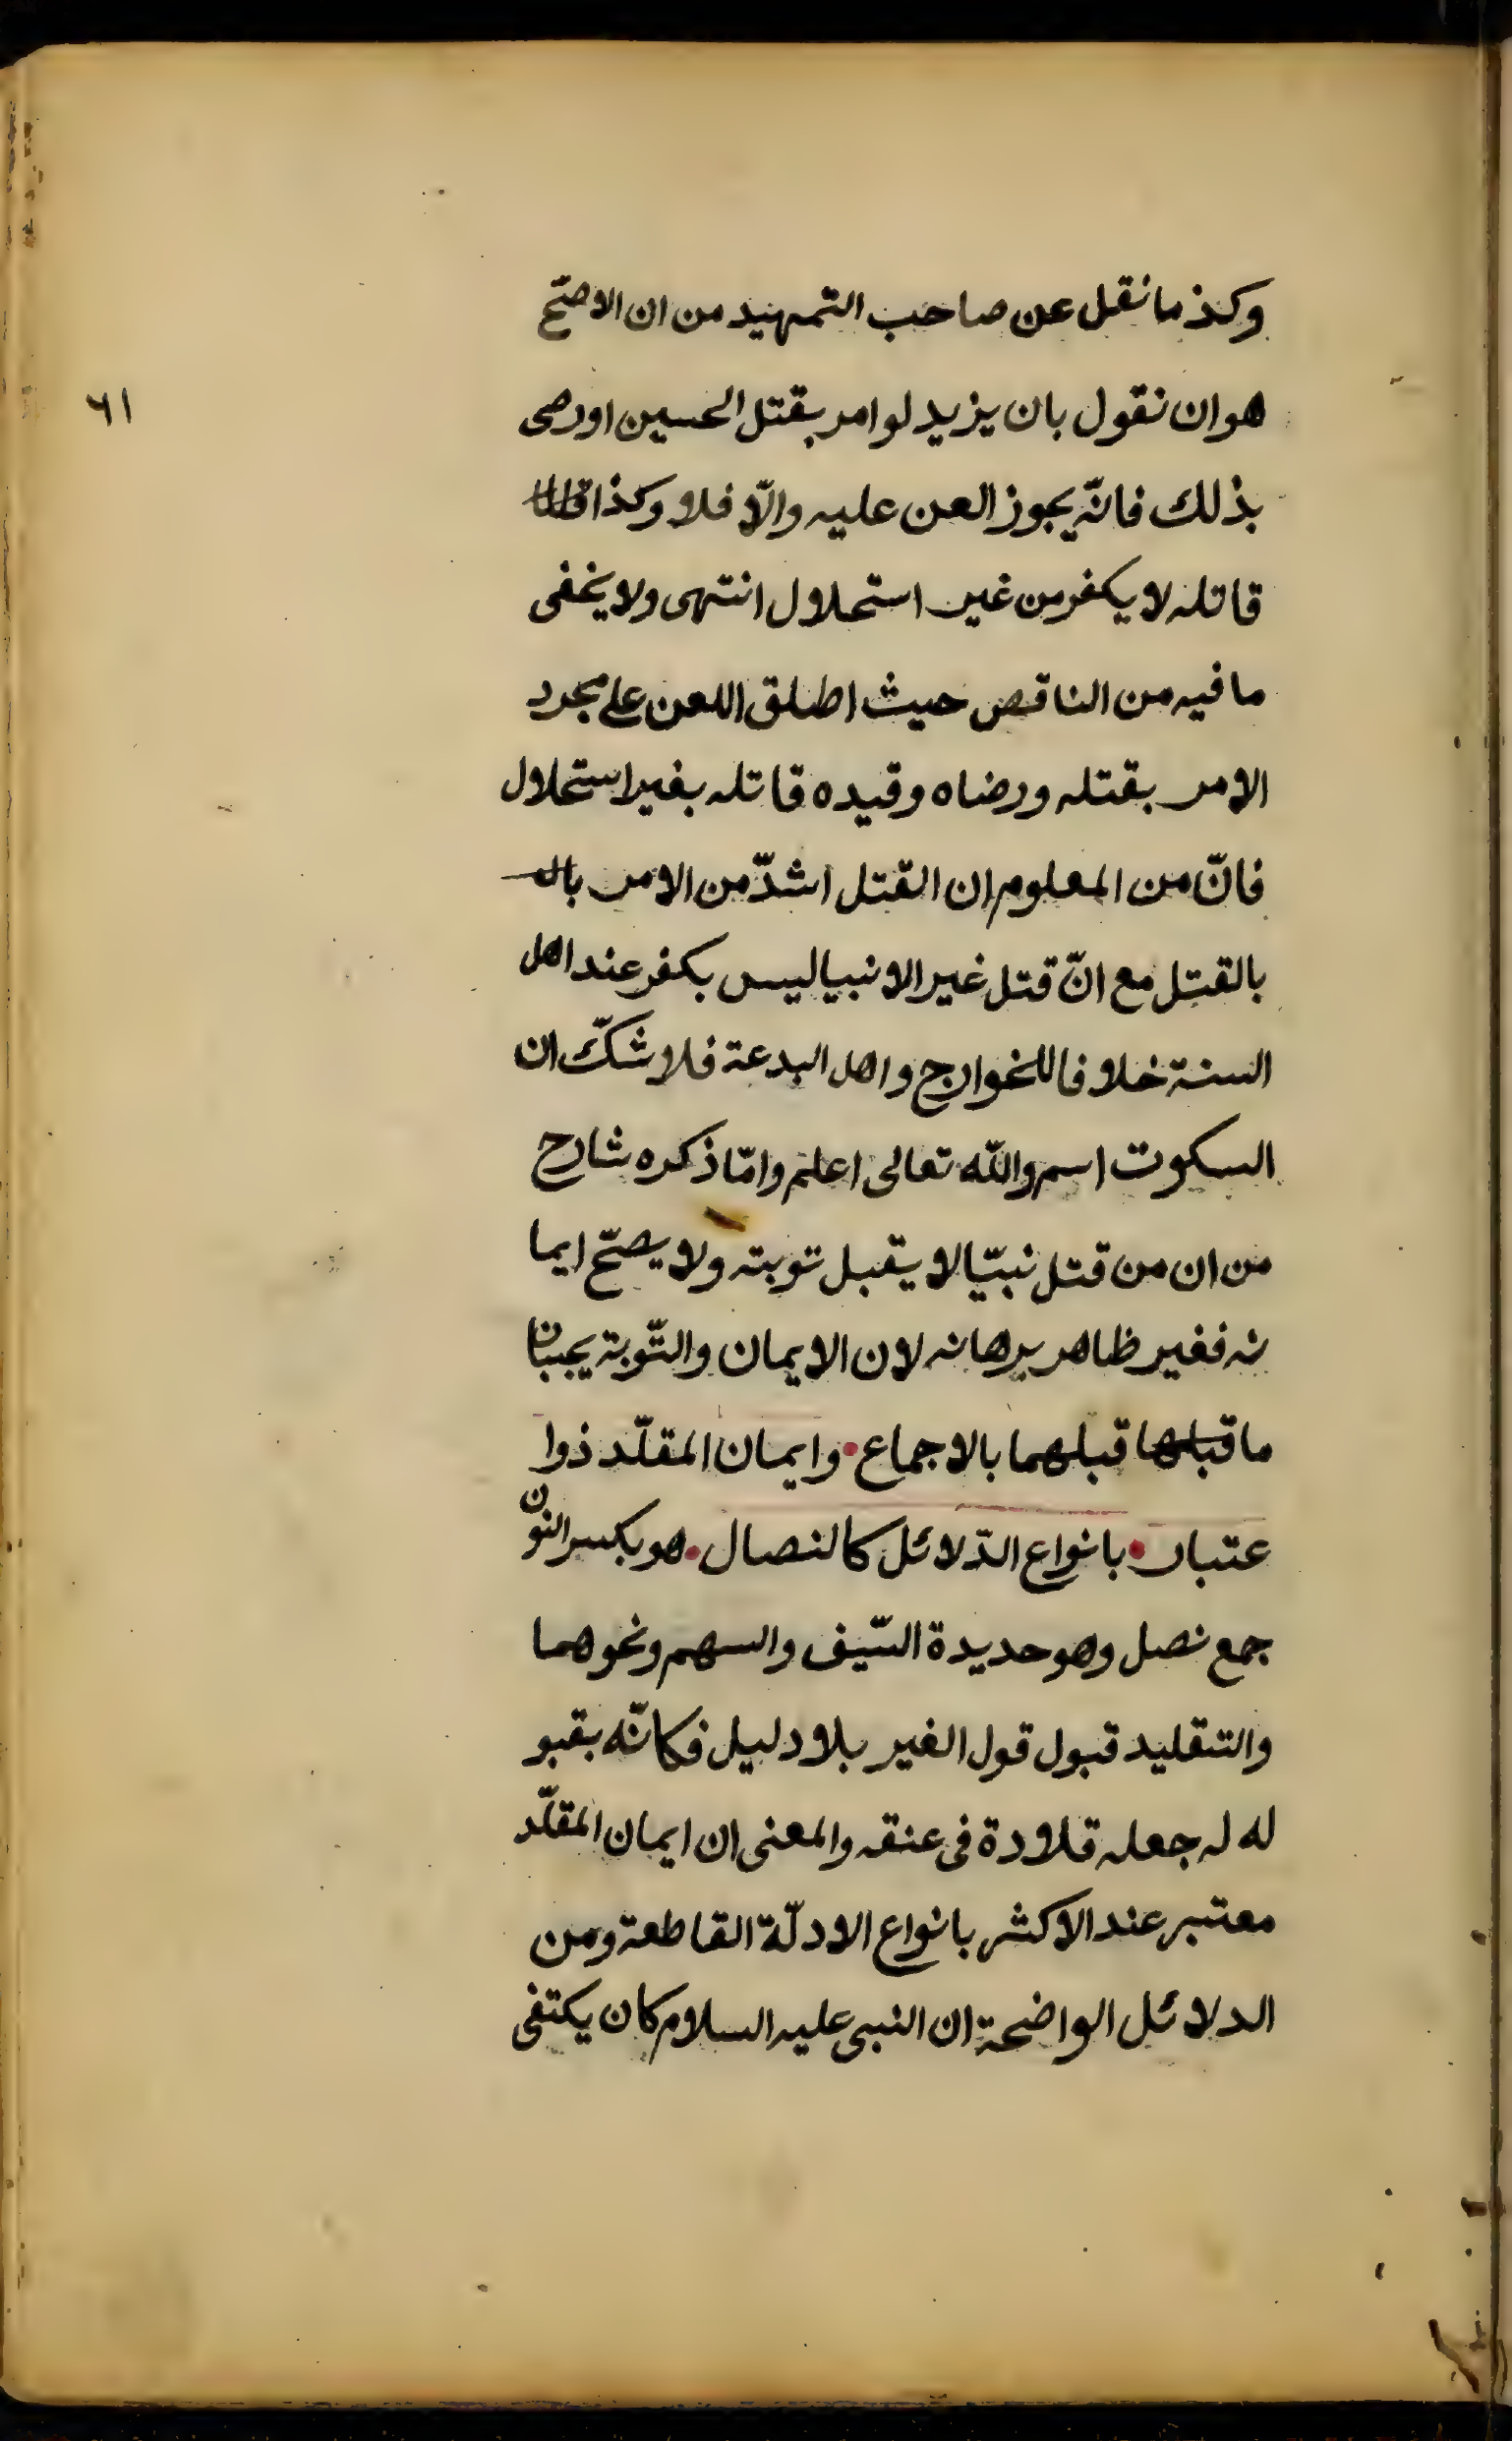 وكذ ما نقل عن صاحب التمهيد من ان الاصحّ
٦١
هو ان نقول بان يزيد لو امر بقتل الحسين او رضى
بذلك فانّه يجوز العن عليه والّا فلا وكذا
قاتله لا يكفر من غير استحلال انتهى ولا يخفى
ما فيه من الناقص حيث اطلق اللعن على مجرد
الامر بقتله ورضاه وقيده قاتله بغير استحلال
فانّ من المعلوم ان القتل اشدّ من الامر بالـ
بالقتل مع انّ قتل غير الانبيا ليس بكفر عند اهل
السنة خلافا للخوارج واهل البدعة فلا شكّ ان
السكوت اسم والله تعالى اعلم وامّا ذكره شارح
من ان من قتل نبيّا لا يقبل توبته ولا يصحّ ايما
نه فغير ظاهر برهانه لان الايمان والتّوبة يجبّان
ما قبلها قبلهما بالاجماع • وايمان المقلّد ذوا
عتبار • بانواع الدّلائل كالنصال • هو بكسر النون
جمع نصل وهو حديدة السّيف والسهم ونحوهما
والتقليد قبول قول الغير بلا دليل فكانّه بقبو
له له جعله قلادة فى عنقه والمعنى ان ايمان المقلّد
معتبر عند الاكثر بانواع الادلّة القاطعة ومن
الدلائل الواضحة ان النبى عليه السلام كان يكتفى